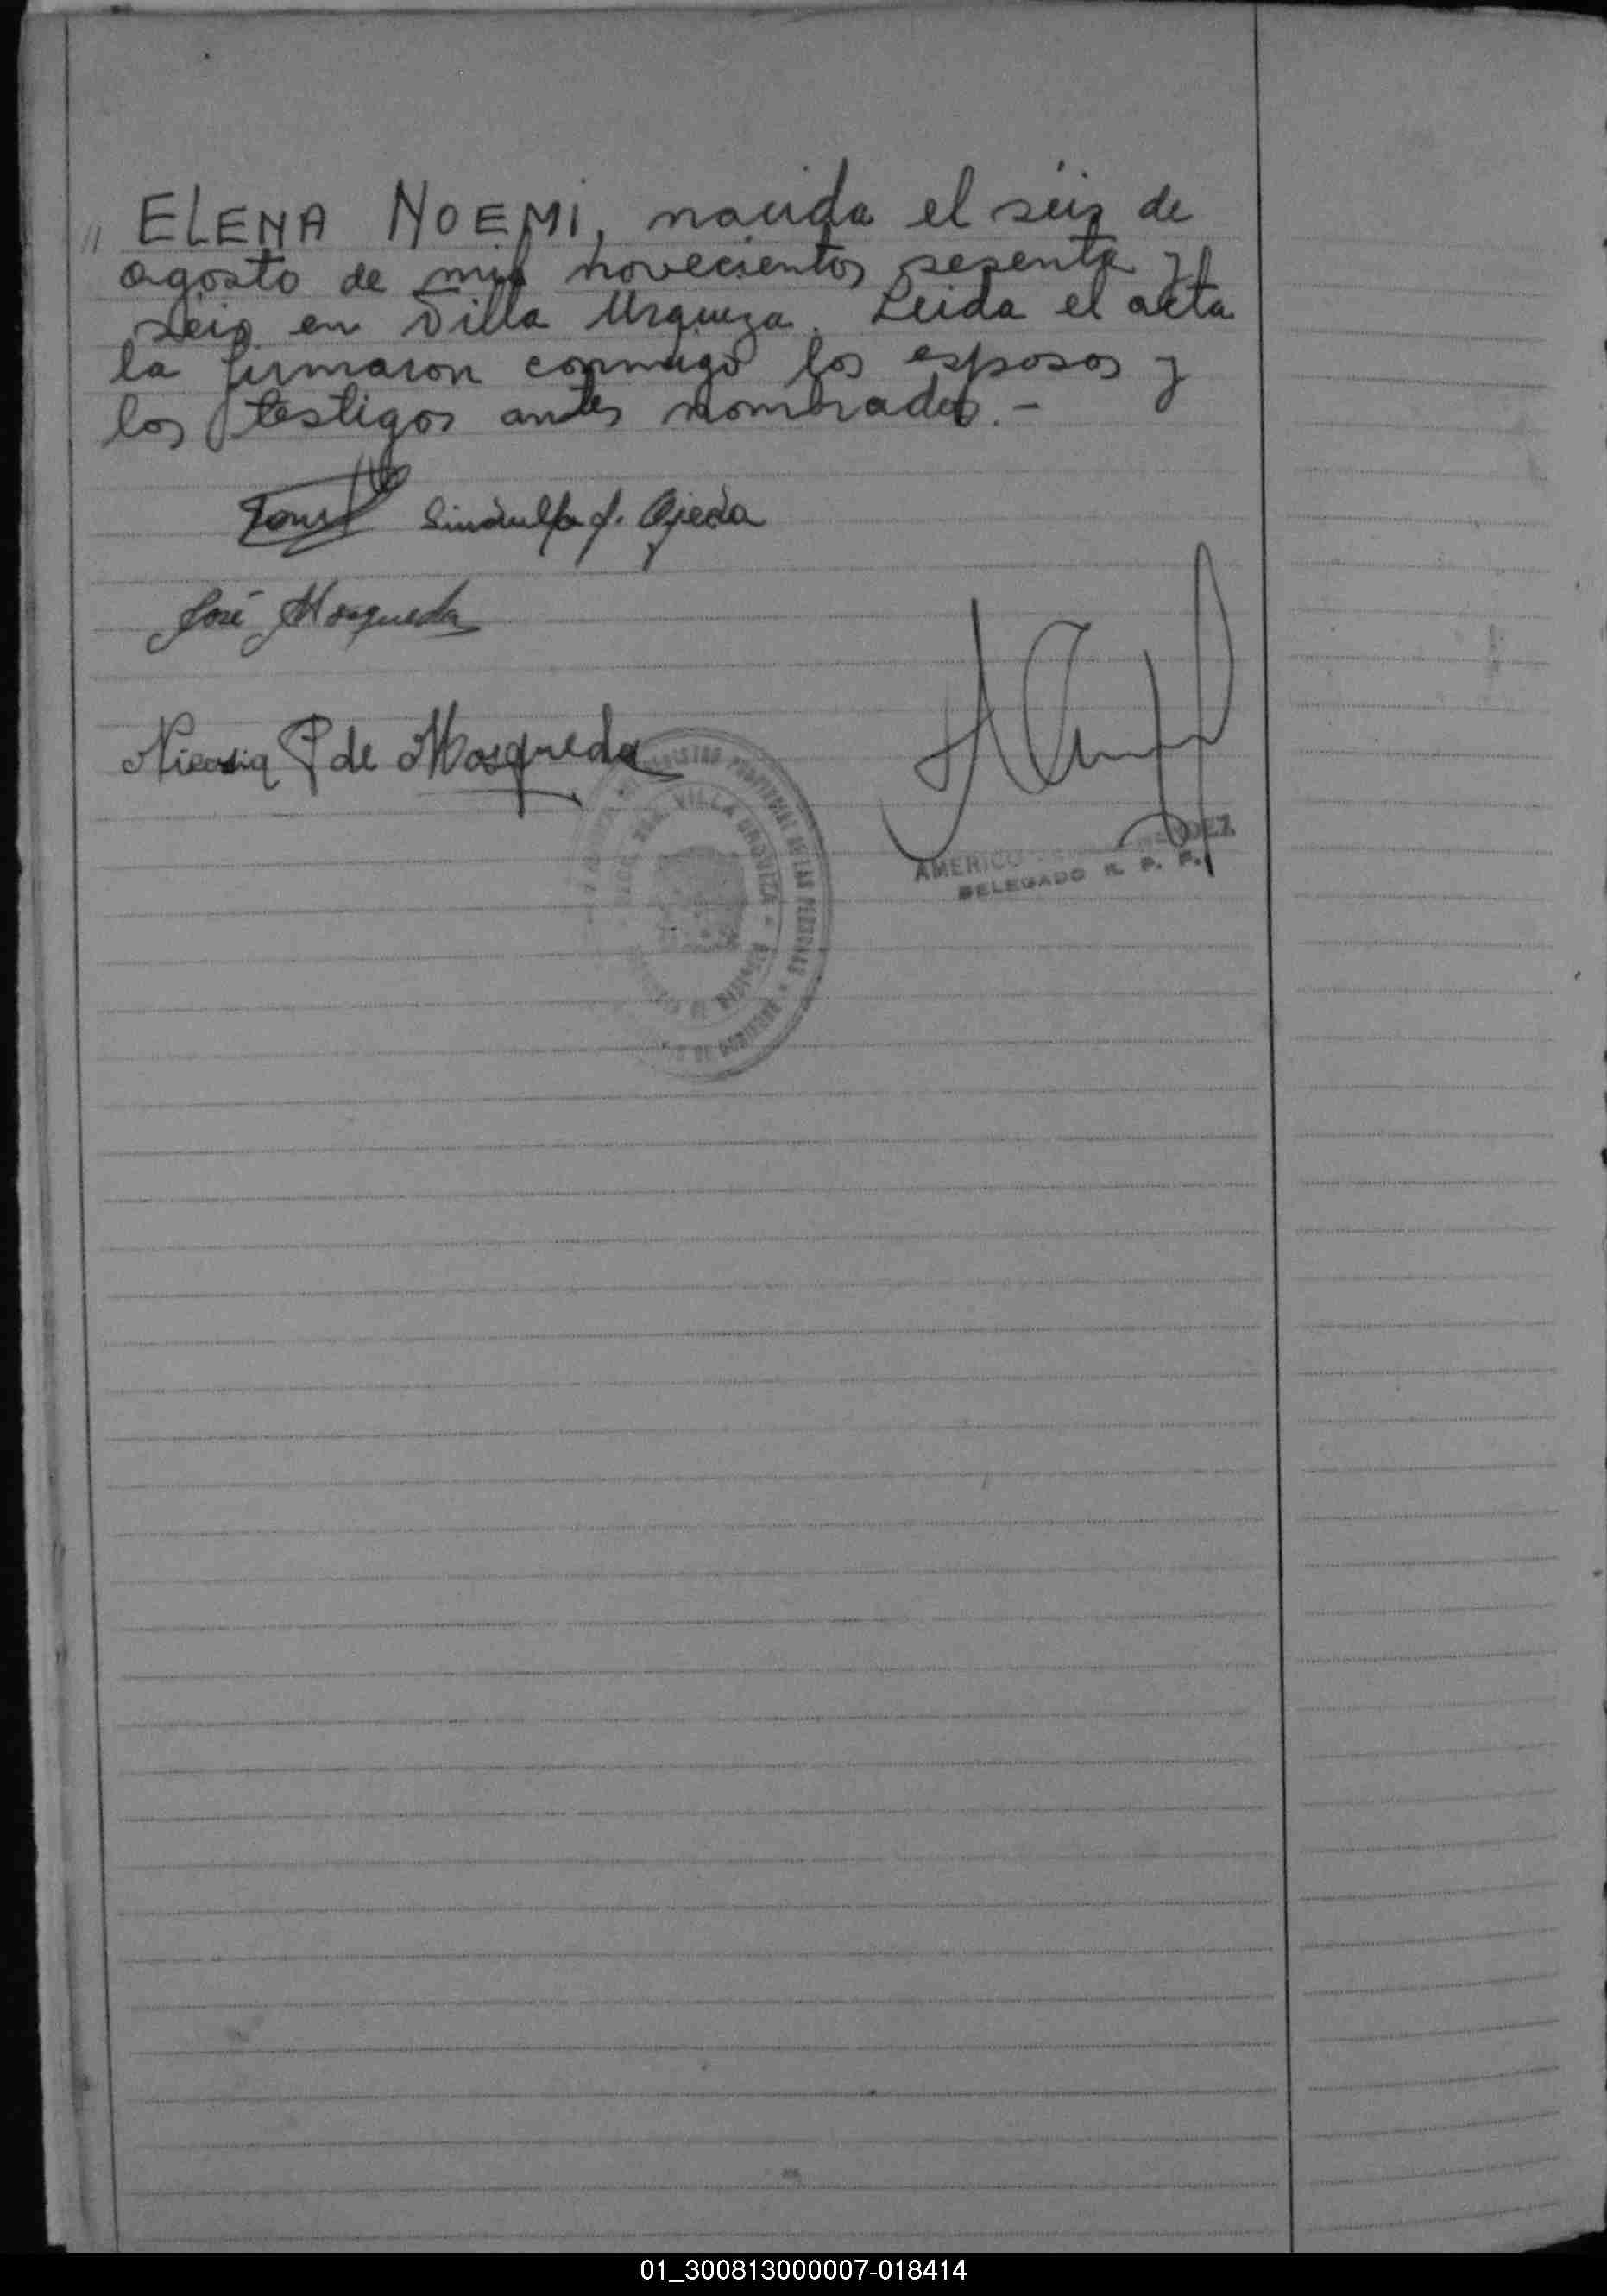 " ELENA NOEMI, nacida el seis de
agosto de mil novecientos sesenta y
seis en Villa Urquiza. Leida el acta
la firmaron conmigo los esposos y
los testigos antes nombrados. -
Sindulfa J. Ojeda
José Mosqueda
Nicasia P de Mosqueda
REGISTRO PROVINCIAL DE LAS PERSONAS
VILLA URQUIZA
DE GOBIERNO
AMERICO
DELEGADO R. P. P.
01_300813000007-018414